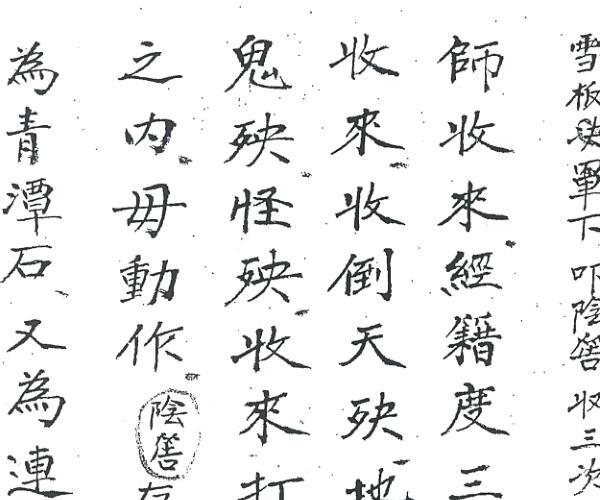 雪板決軍下吖陰窖收三次
師收來經籍度三
收來收倒天殃地
鬼殃怪殃收來打
之內毋動作陰窖
為青潭石又為連